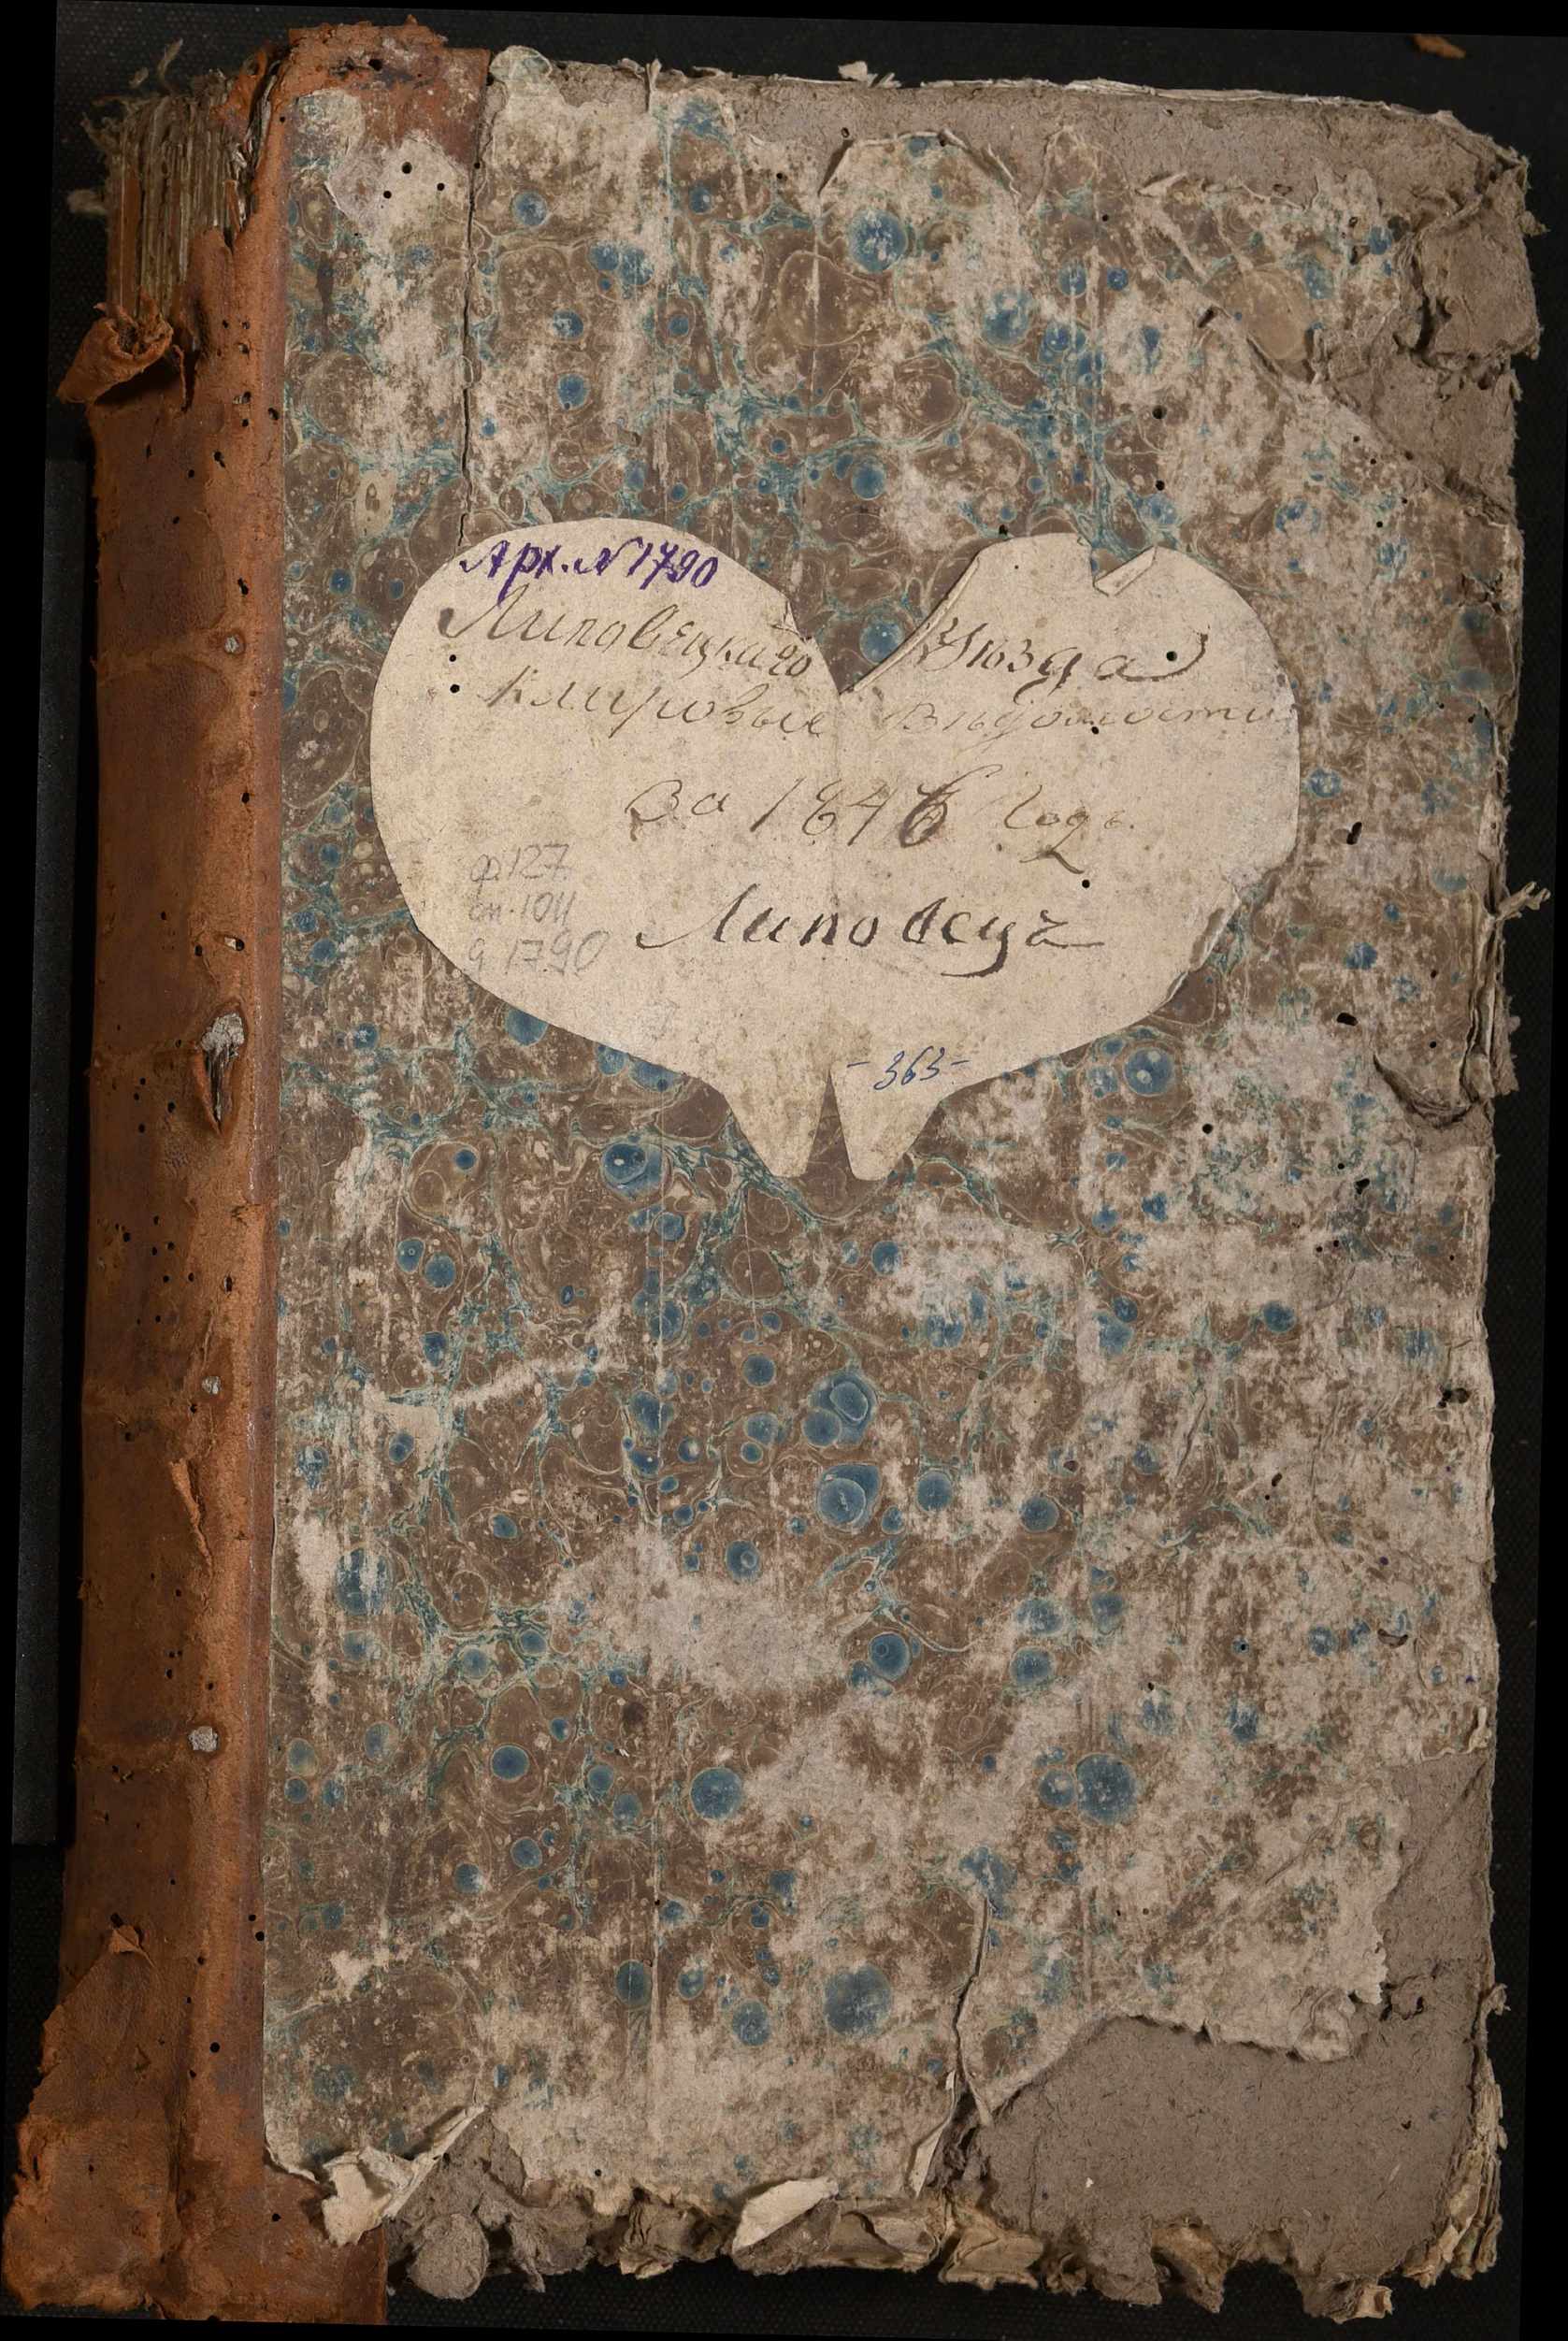 Арх. N 1790
Липовецкаго Уѣзда
Клировые Вѣдомости
За 1846 Годъ.
ф 127
оп. 1011
д 1790
Липовецъ
- 363 -